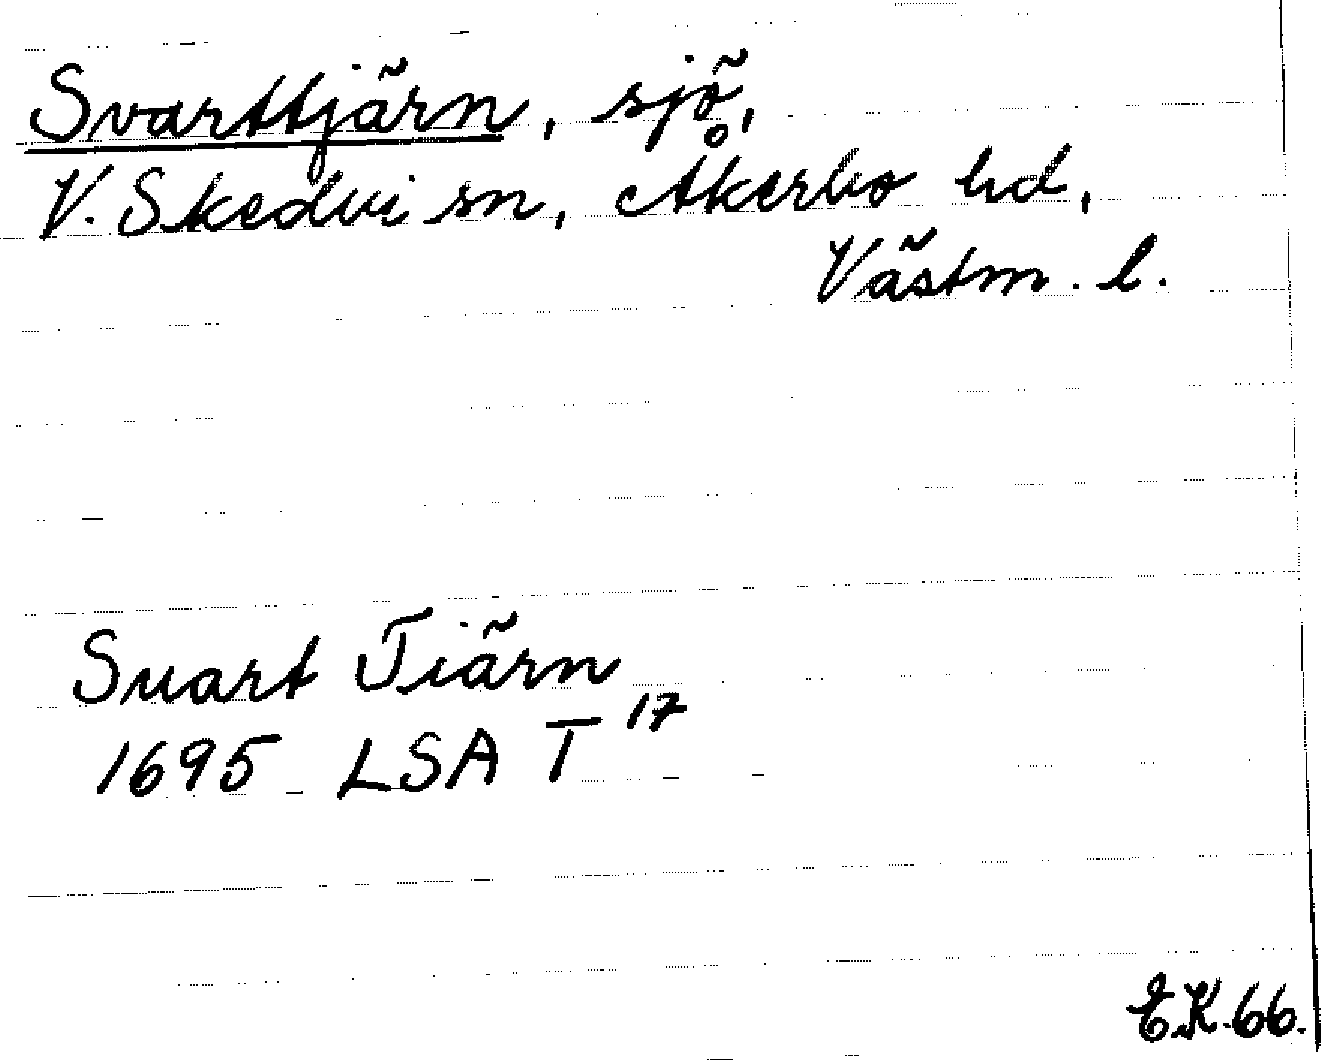 Svarttjärn, sjö,
V. Skedvi sn, Åkerbo hd,
Västm. l.
Suart Tiärn
1695 LSA T 17
E.K. 66.